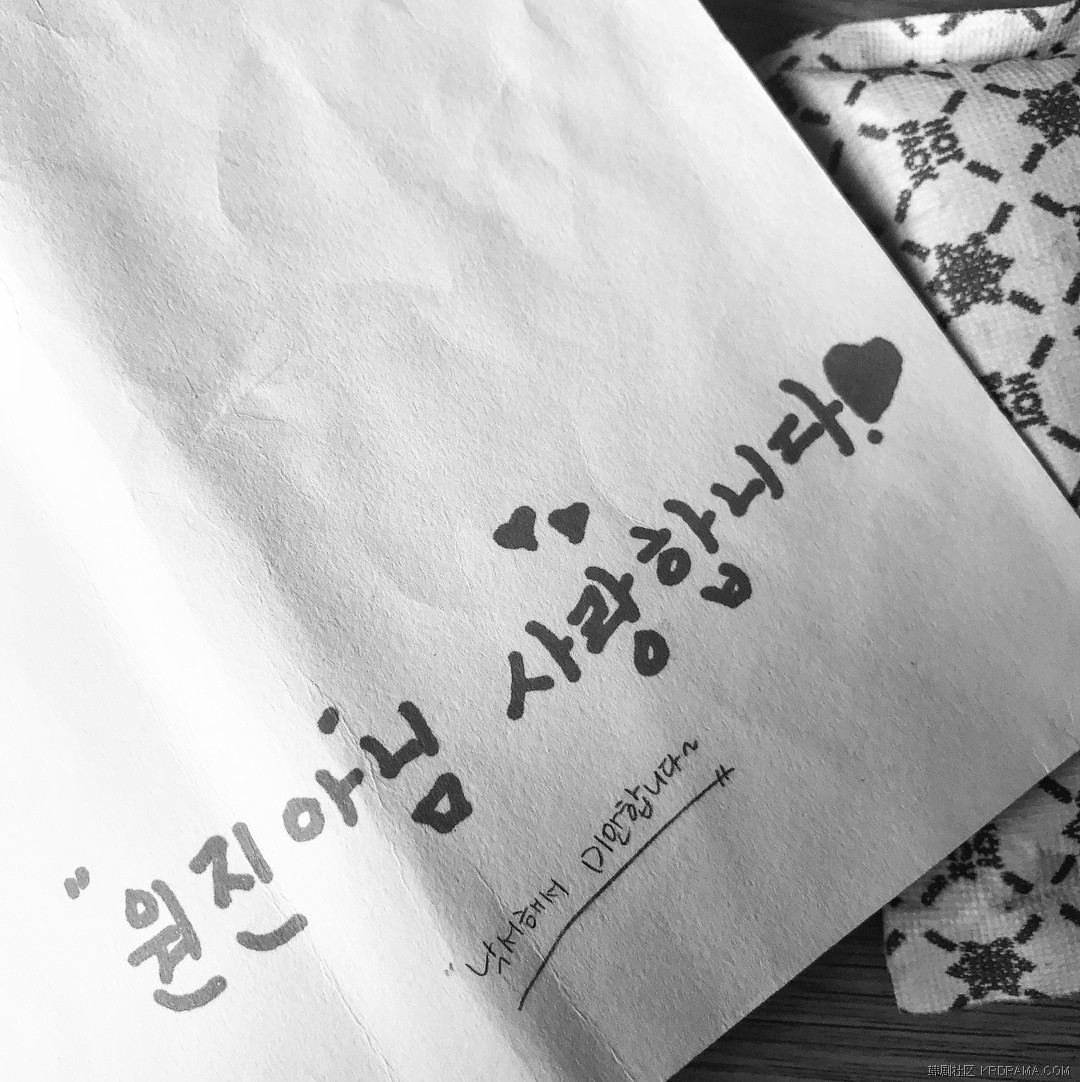 "원진아님 사랑합니다!
"낙서해서 미안합니다~"
HOT
PACK
HOT
韩剧社区 KRDRAMA.COM